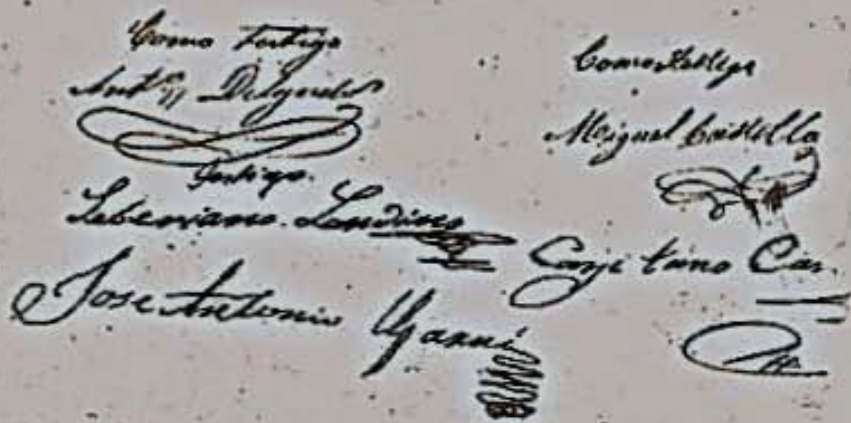 Como testigo
Antº Delgado
Testigo.
Seberiano Londines
Jose Antonio
Como testigo
Miguel Castella
Cayetano